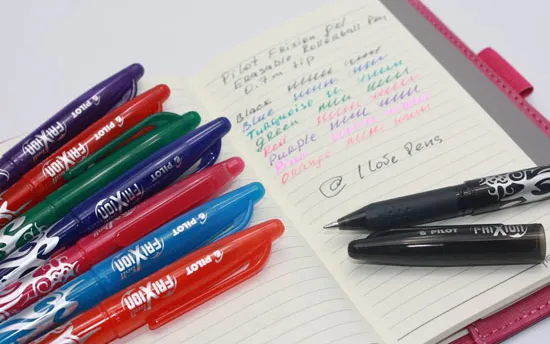 Pilot Frixion gel
Erasable Rollerball Pen
0.7m tip
Black
Blue
Turquoise
Green
Red
Purple
Orange
@ I Love Pens
PILOT
FRIXion
PILOT
FRIXion
PILOT
FRIXion
PILOT
FRIXion Ball
FRIXion Ball
PILOT
FRIXion Ball
PILOT
FRIXion Ball
PILOT FRIXion